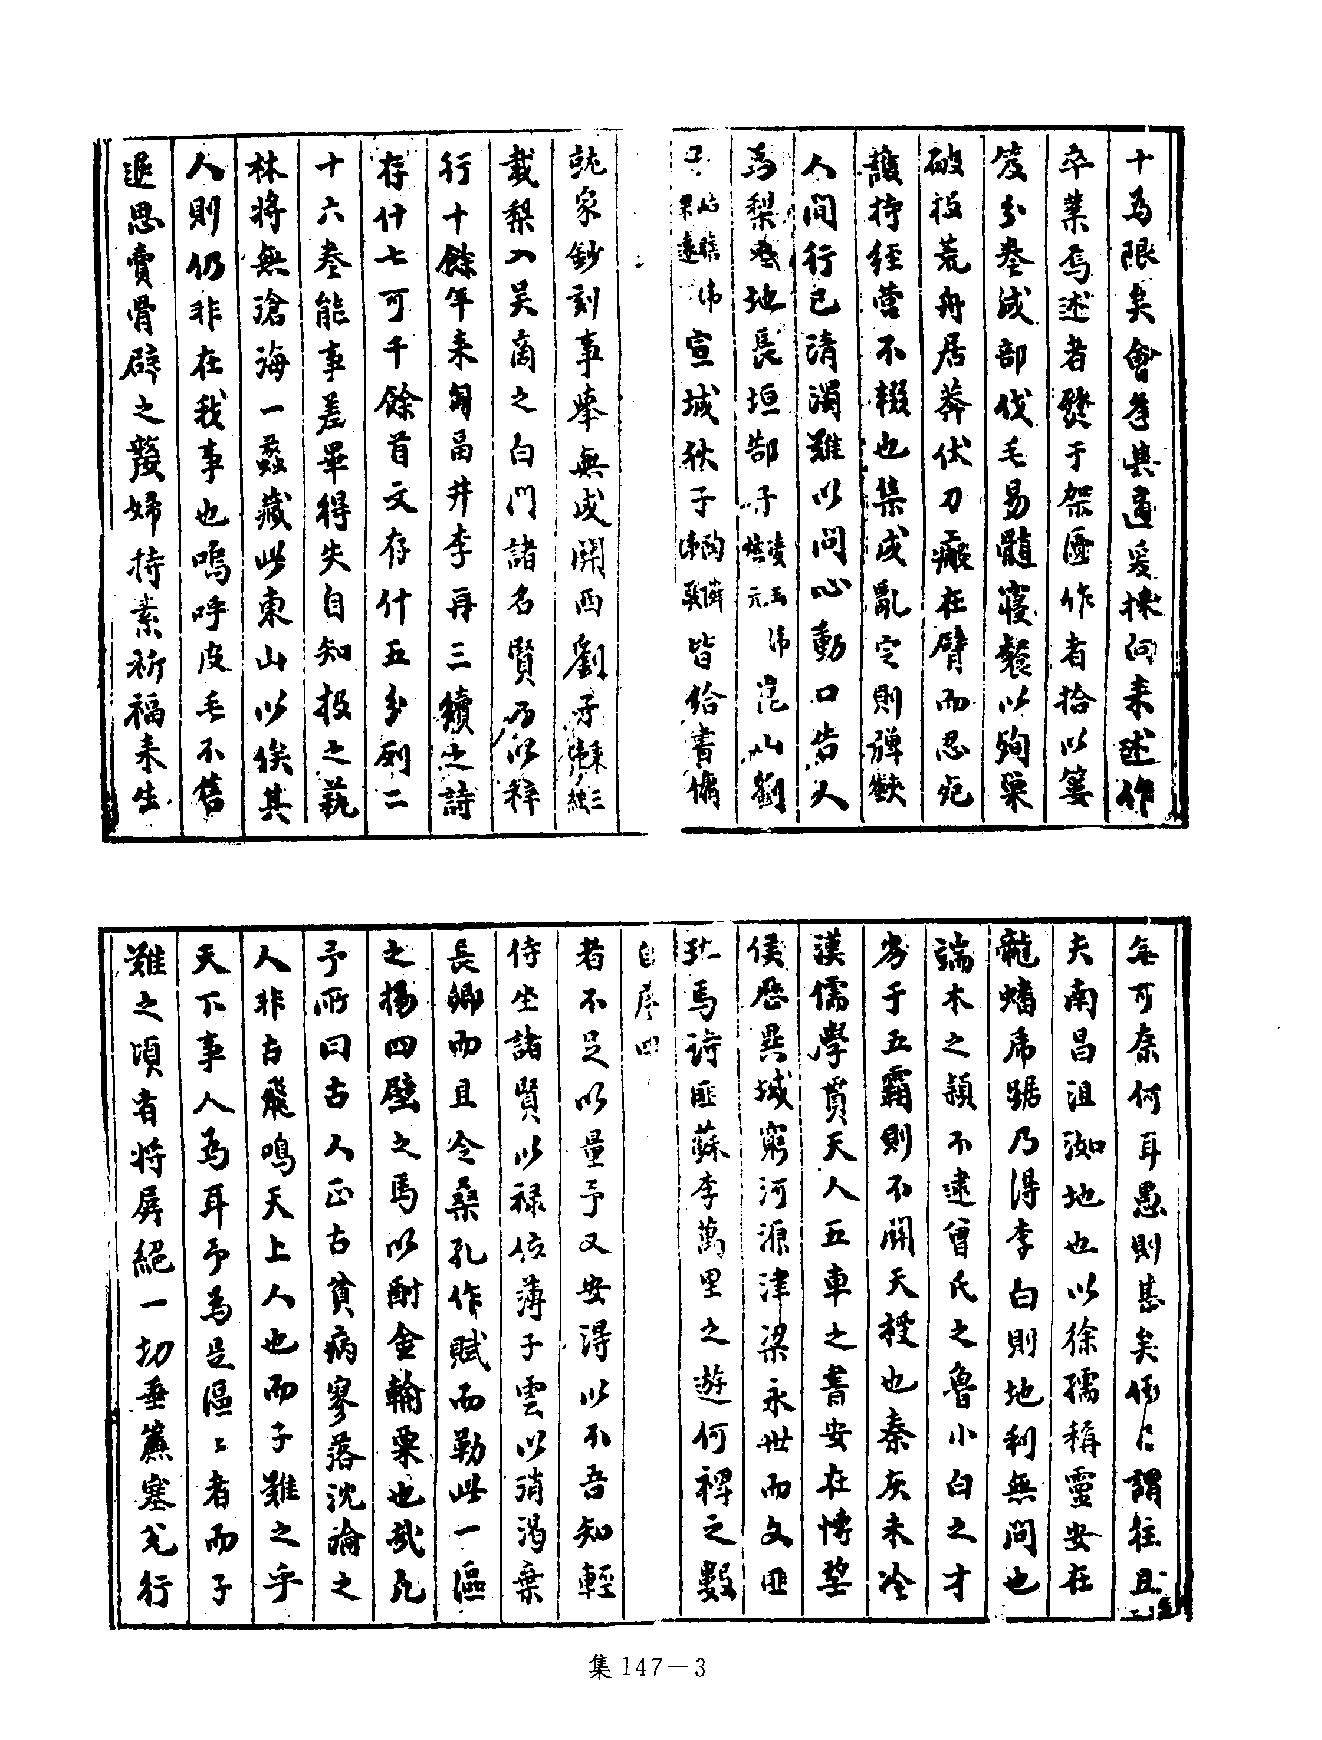 十為限矣會孝與適爰揀向來述作
卒業焉述者發于架匭作者拾以簍
笈分卷滅部伐毛易髓寢餐以殉槩
破板荒舟居莽伏刀瘢在臂而忍死
護持經營不輟也集成亂定則彈歎
人間行已清濁難以問心動口告人
為梨卷地長垣郜子凌玉諱煐元崑山劉
子諱果遠宣城狄子皆給書傭
就家鈔刻事舉無成關西劉子
載梨入吳商之白門諸名賢而以梓
行十餘年來閩禺井李再三續之詩
存什七可千餘首文存什五分列二
十六卷能事差畢得失自知投之藝
林將無滄海一蠡藏此東山以俟其
人則仍非在我事也嗚呼皮毛不售
退思賣骨辟之嫠婦持素祈福來生
每可奈何耳愚則甚矣倀倀謂往且
夫南昌沮洳地也以徐孺稱靈安在
龍蟠虎踞乃得李白則地利無問也
端木之穎不逮曾氏之魯小白之才
劣于五霸則不關天授也秦灰未冷
漢儒學貫天人五車之書安在博望
侯歷異域窮河源津梁永世而文匪
班馬詩匪蘇李萬里之遊何裨之數
自序 四
者不足以量予又安得以不吾知輕
侍坐諸賢以祿位薄子雲以消渴棄
長卿而且令桑孔作賦而勒此一區
之揚四壁之馬以酎金輸粟也哉凡
予所曰古人正古貧病寥落沈淪之
人非古飛鳴天上人也而子難之乎
天下事人為耳予為是區區者而子
難之頃者將屏絕一切垂簾塞兌行
集 147－3